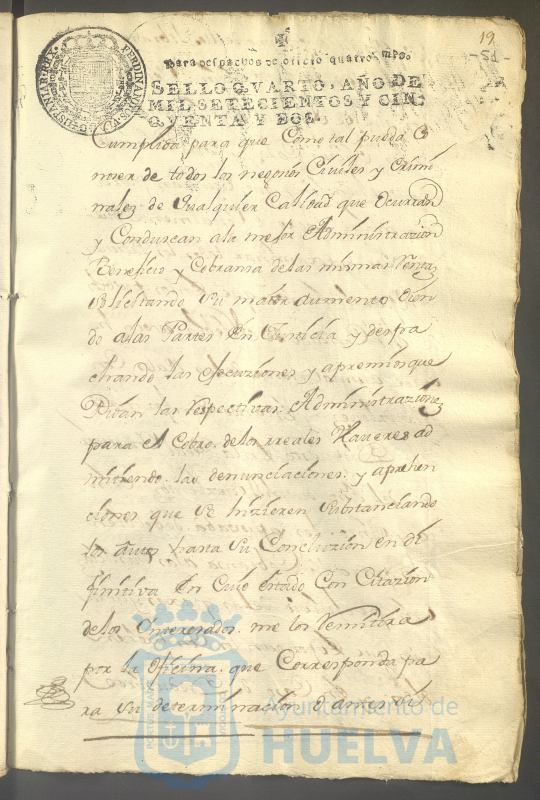 19
Para despachos de oficio quatro mrs.
SELLO QVARTO, AÑO DE
MIL SETECIENTOS Y CIN-
QVENTA Y DOS.
Cumplida para que Como tal pueda Co
nocer de todos los negocios Civiles y Crimi
nales de qualquier Calidad que Ocurran
y Conduscan a la mejor Administrazion
Beneficio y Cobranza de las mismas Renta
Solicitando su maior aumento Oien
do a las Partes En Justicia y despa
chando las Execuziones y apremios que
Pidan las Respectivas Administrazione
para el Cobro de los reales Haveres ad
mitiendo las denunciaciones y aprehen
ciones que se hizieren substanciando
los autos hasta su Concluzion en di
finitiva En Cuio estado Con Citazion
de los Interesados me los Remitira
por la Oficina que Corresponda pa
ra su determinacion o antes si
Ayuntamiento de
HUELVA